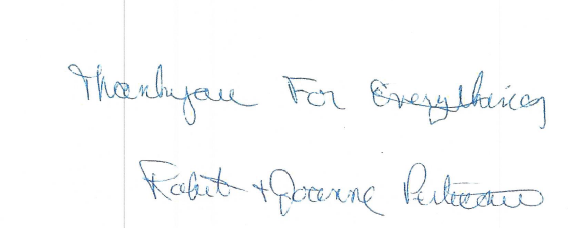 Thankyou For Everything
Robert + Joanne